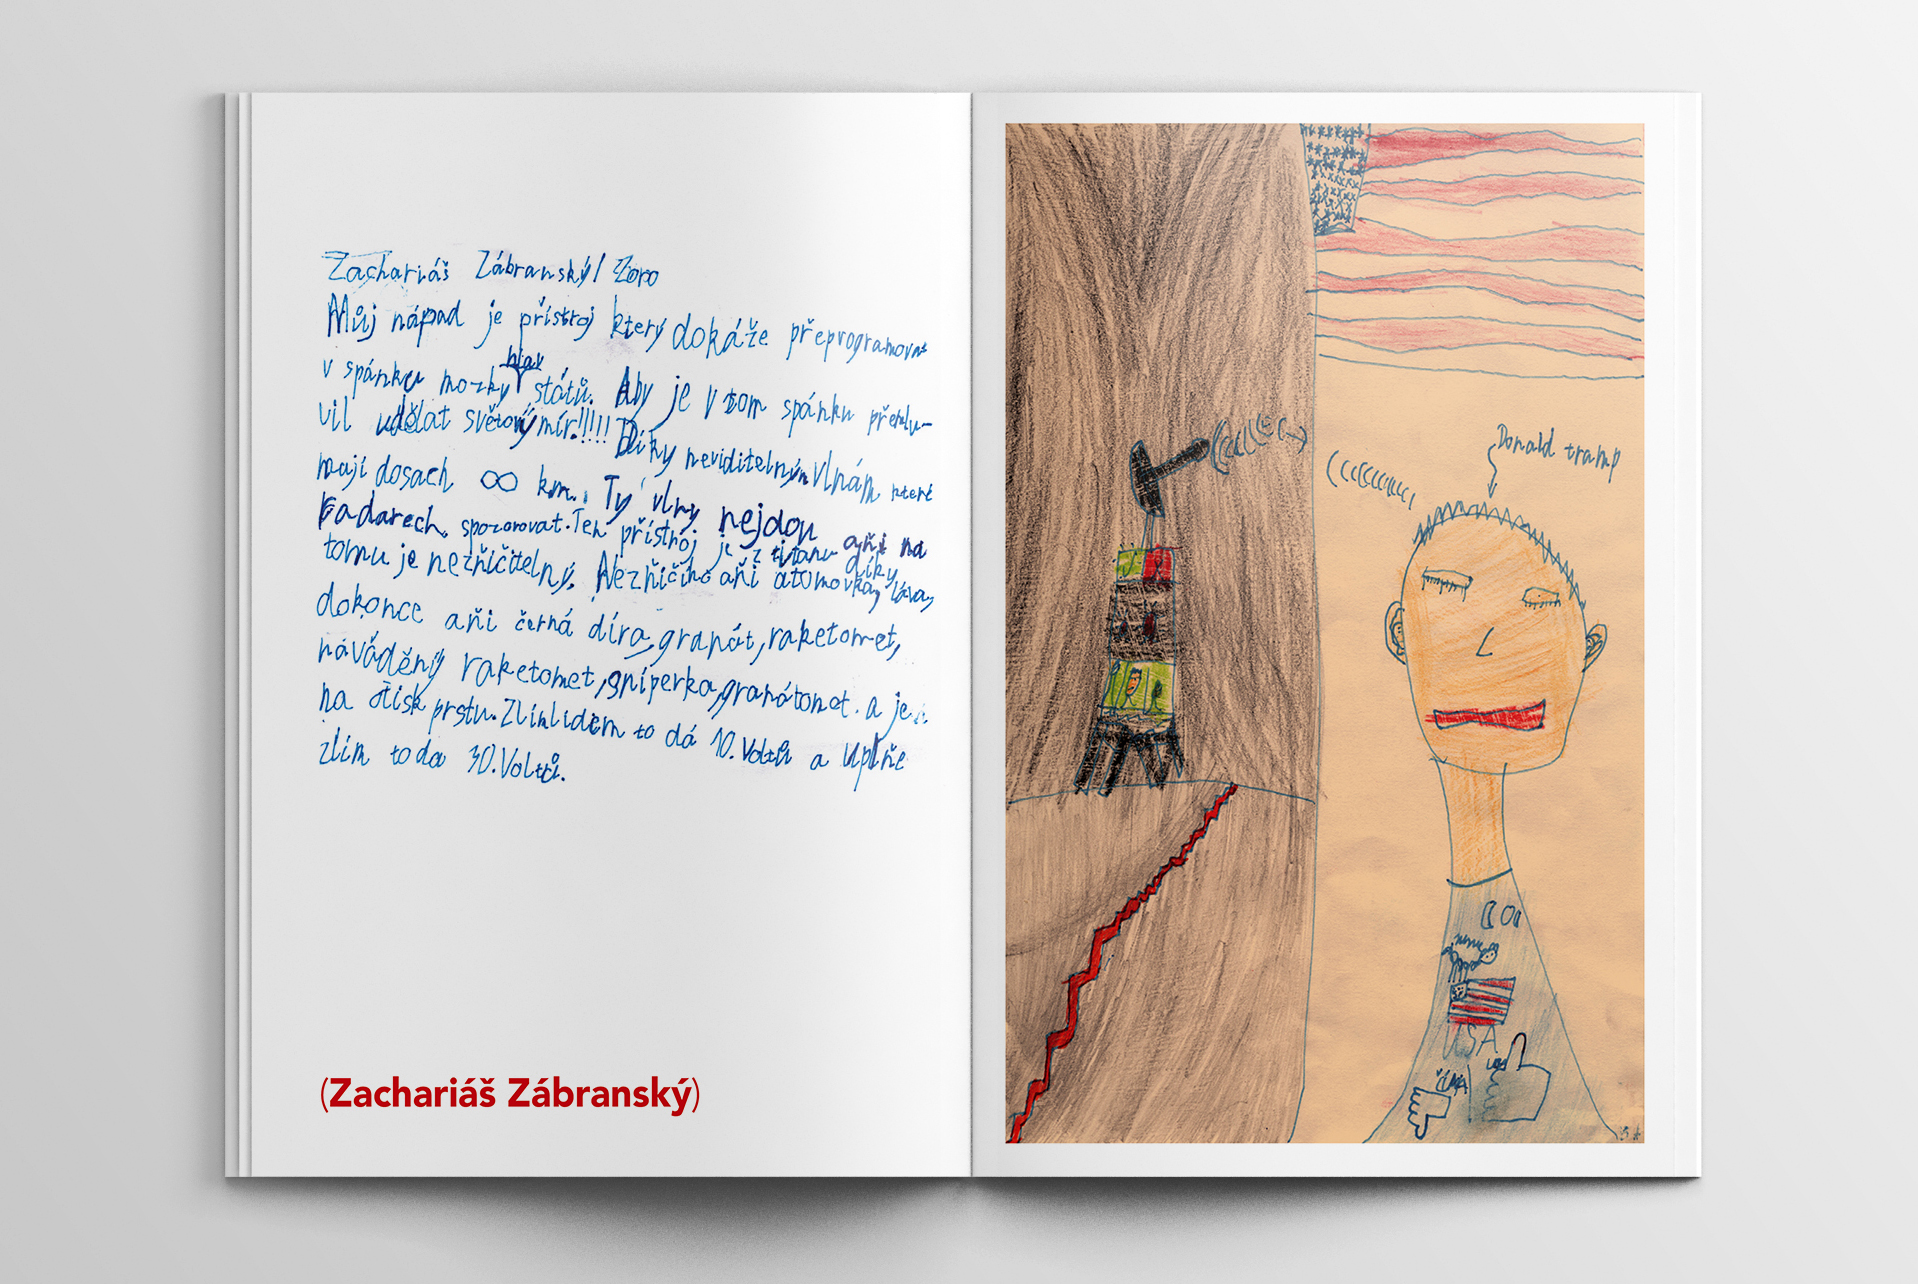 Zachariáš Zábranský/ Zoro
Můj nápad je přístroj který dokáže přeprogramovat
v spánku mozky hlav států. Aby je v tom spánku přemlu-
vil udělat světový mír!!!!! Díky neviditelným vlnám, které
mají dosach ∞ km. Ty vlny nejdou aňi na
radarech spozorovat. Ten přístroj je z titanu díky
tomu je nezňičitelný. Nezňičího aňi atomovka, láva,
dokonce aňi černá díra, granát, raketomet,
naváděný raketomet, sniperka, granátomet. a je
na otisk prstu. Zlímlidem to dá 10. Voltů a uplňe
zlím to da 30. Voltů.
(Zachariáš Zábranský)
Donald tramp
USA
USA
ČÍNA